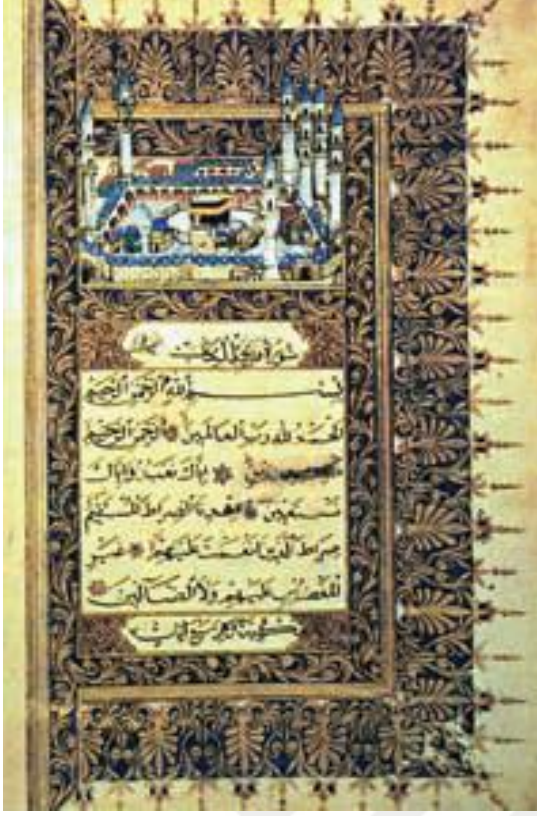 سورة فاتحة الكتاب
بسم الله الرحمن الرحيم
الحمد لله رب العالمين الرحمن الرحيم
إياك نعبد وإياك
نستعين اهدنا الصراط المستقيم
صراط الذين أنعمت عليهم غير
المغضوب عليهم ولا الضالين